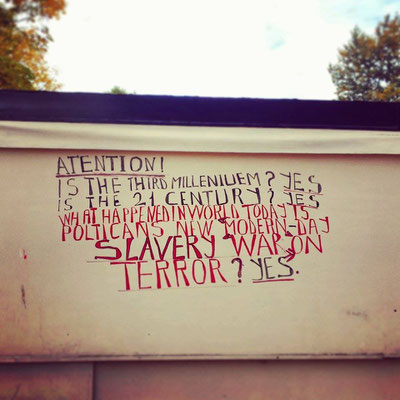 ATENTION!
IS THE THIRD MILLENIUEM? YES
IS THE 21 CENTURY? YES
WHAT HAPPENED IN WORLD TODAY IS
POLTICANS NEW MODERN-DAY
SLAVERY WAR ON
TERROR? YES.